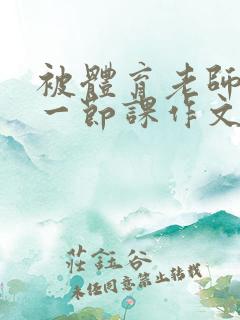 被體育老師
一節課作文
莊鈺谷
未經同意禁止轉載